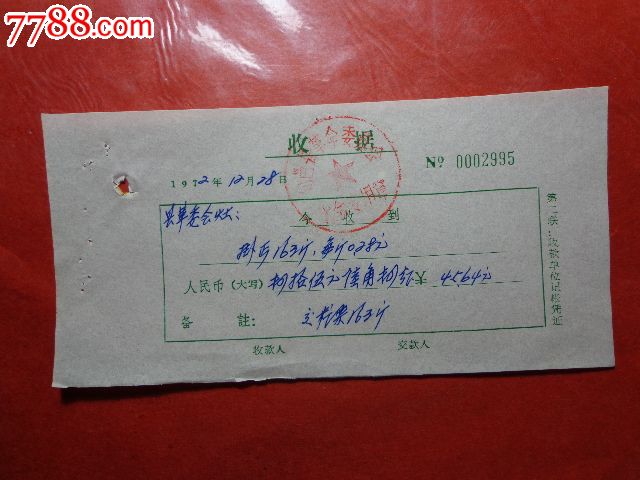 7788.com
中国收藏热线
收 据
Nº 0002995
1972年12月28日
县革委会伙:
今收到
挂面163斤,每斤0.28元
人民币(大写)肆拾伍元陆角肆分¥ 45.64元
备 註: 交粮票163斤
收款人 交款人
第二联:收款单位记帐凭证